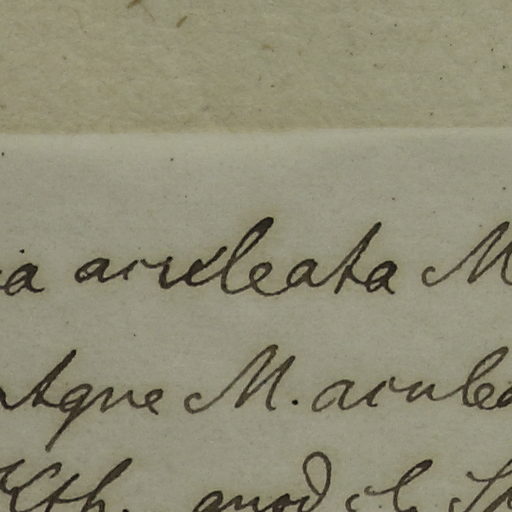 a aculeata M
atque M. aculea
Kth. quod